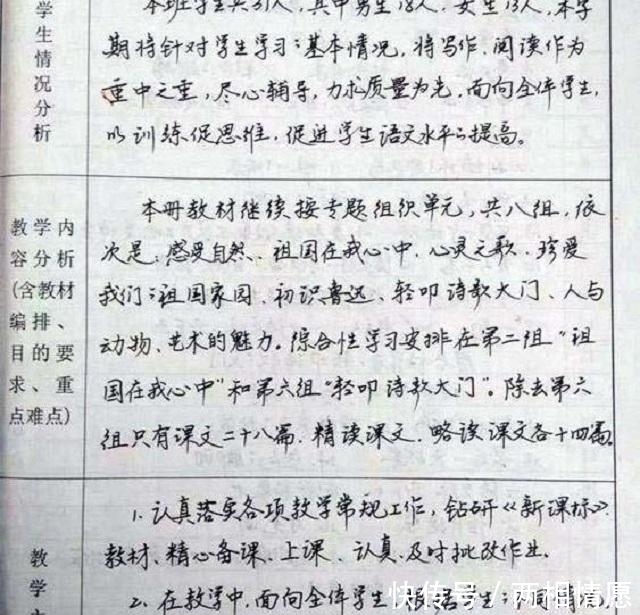 学
生
情
况
分
析
本班学生共31人,其中男生18人,女生13人,本学
期将针对学生学习的基本情况,将写作、阅读作为
重中之重,尽心辅导,力求质量为先,面向全体学生,
以训练促思维,促进学生语文水平的提高。
教学内
容分析
(含教材
编排、
目的要
求、重
点难点)
本册教材继续按专题组织单元,共八组,依
次是:感受自然、祖国在我心中、心灵之歌、珍爱
我们的祖国家园、初识鲁迅、轻叩诗歌大门、人与
动物、艺术的魅力。综合性学习安排在第二组“祖
国在我心中”和第六组“轻叩诗歌大门”。除去第六
组只有课文二十八篇,精读课文、略读课文各十四篇。
教
学
1. 认真落实各项教学常规工作,钻研《新课标》
教材、精心备课、上课、认真及时批改作业。
2. 在教学中,面向全体学生
快传号/两相情愿